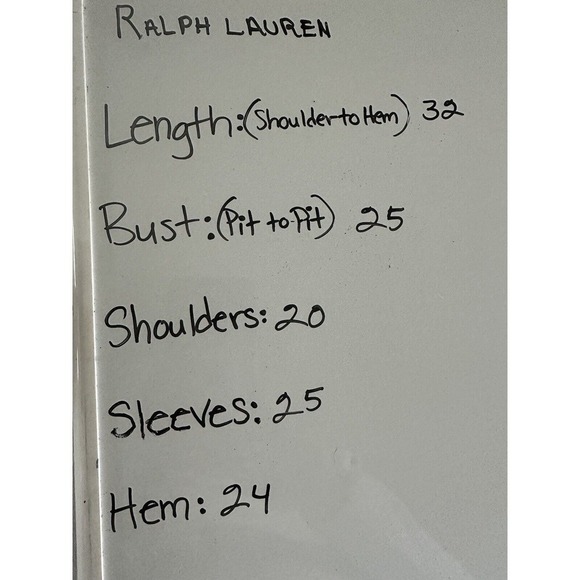 RALPH LAUREN
Length: (Shoulder to Hem) 32
Bust: (Pit to Pit) 25
Shoulders: 20
Sleeves: 25
Hem: 24